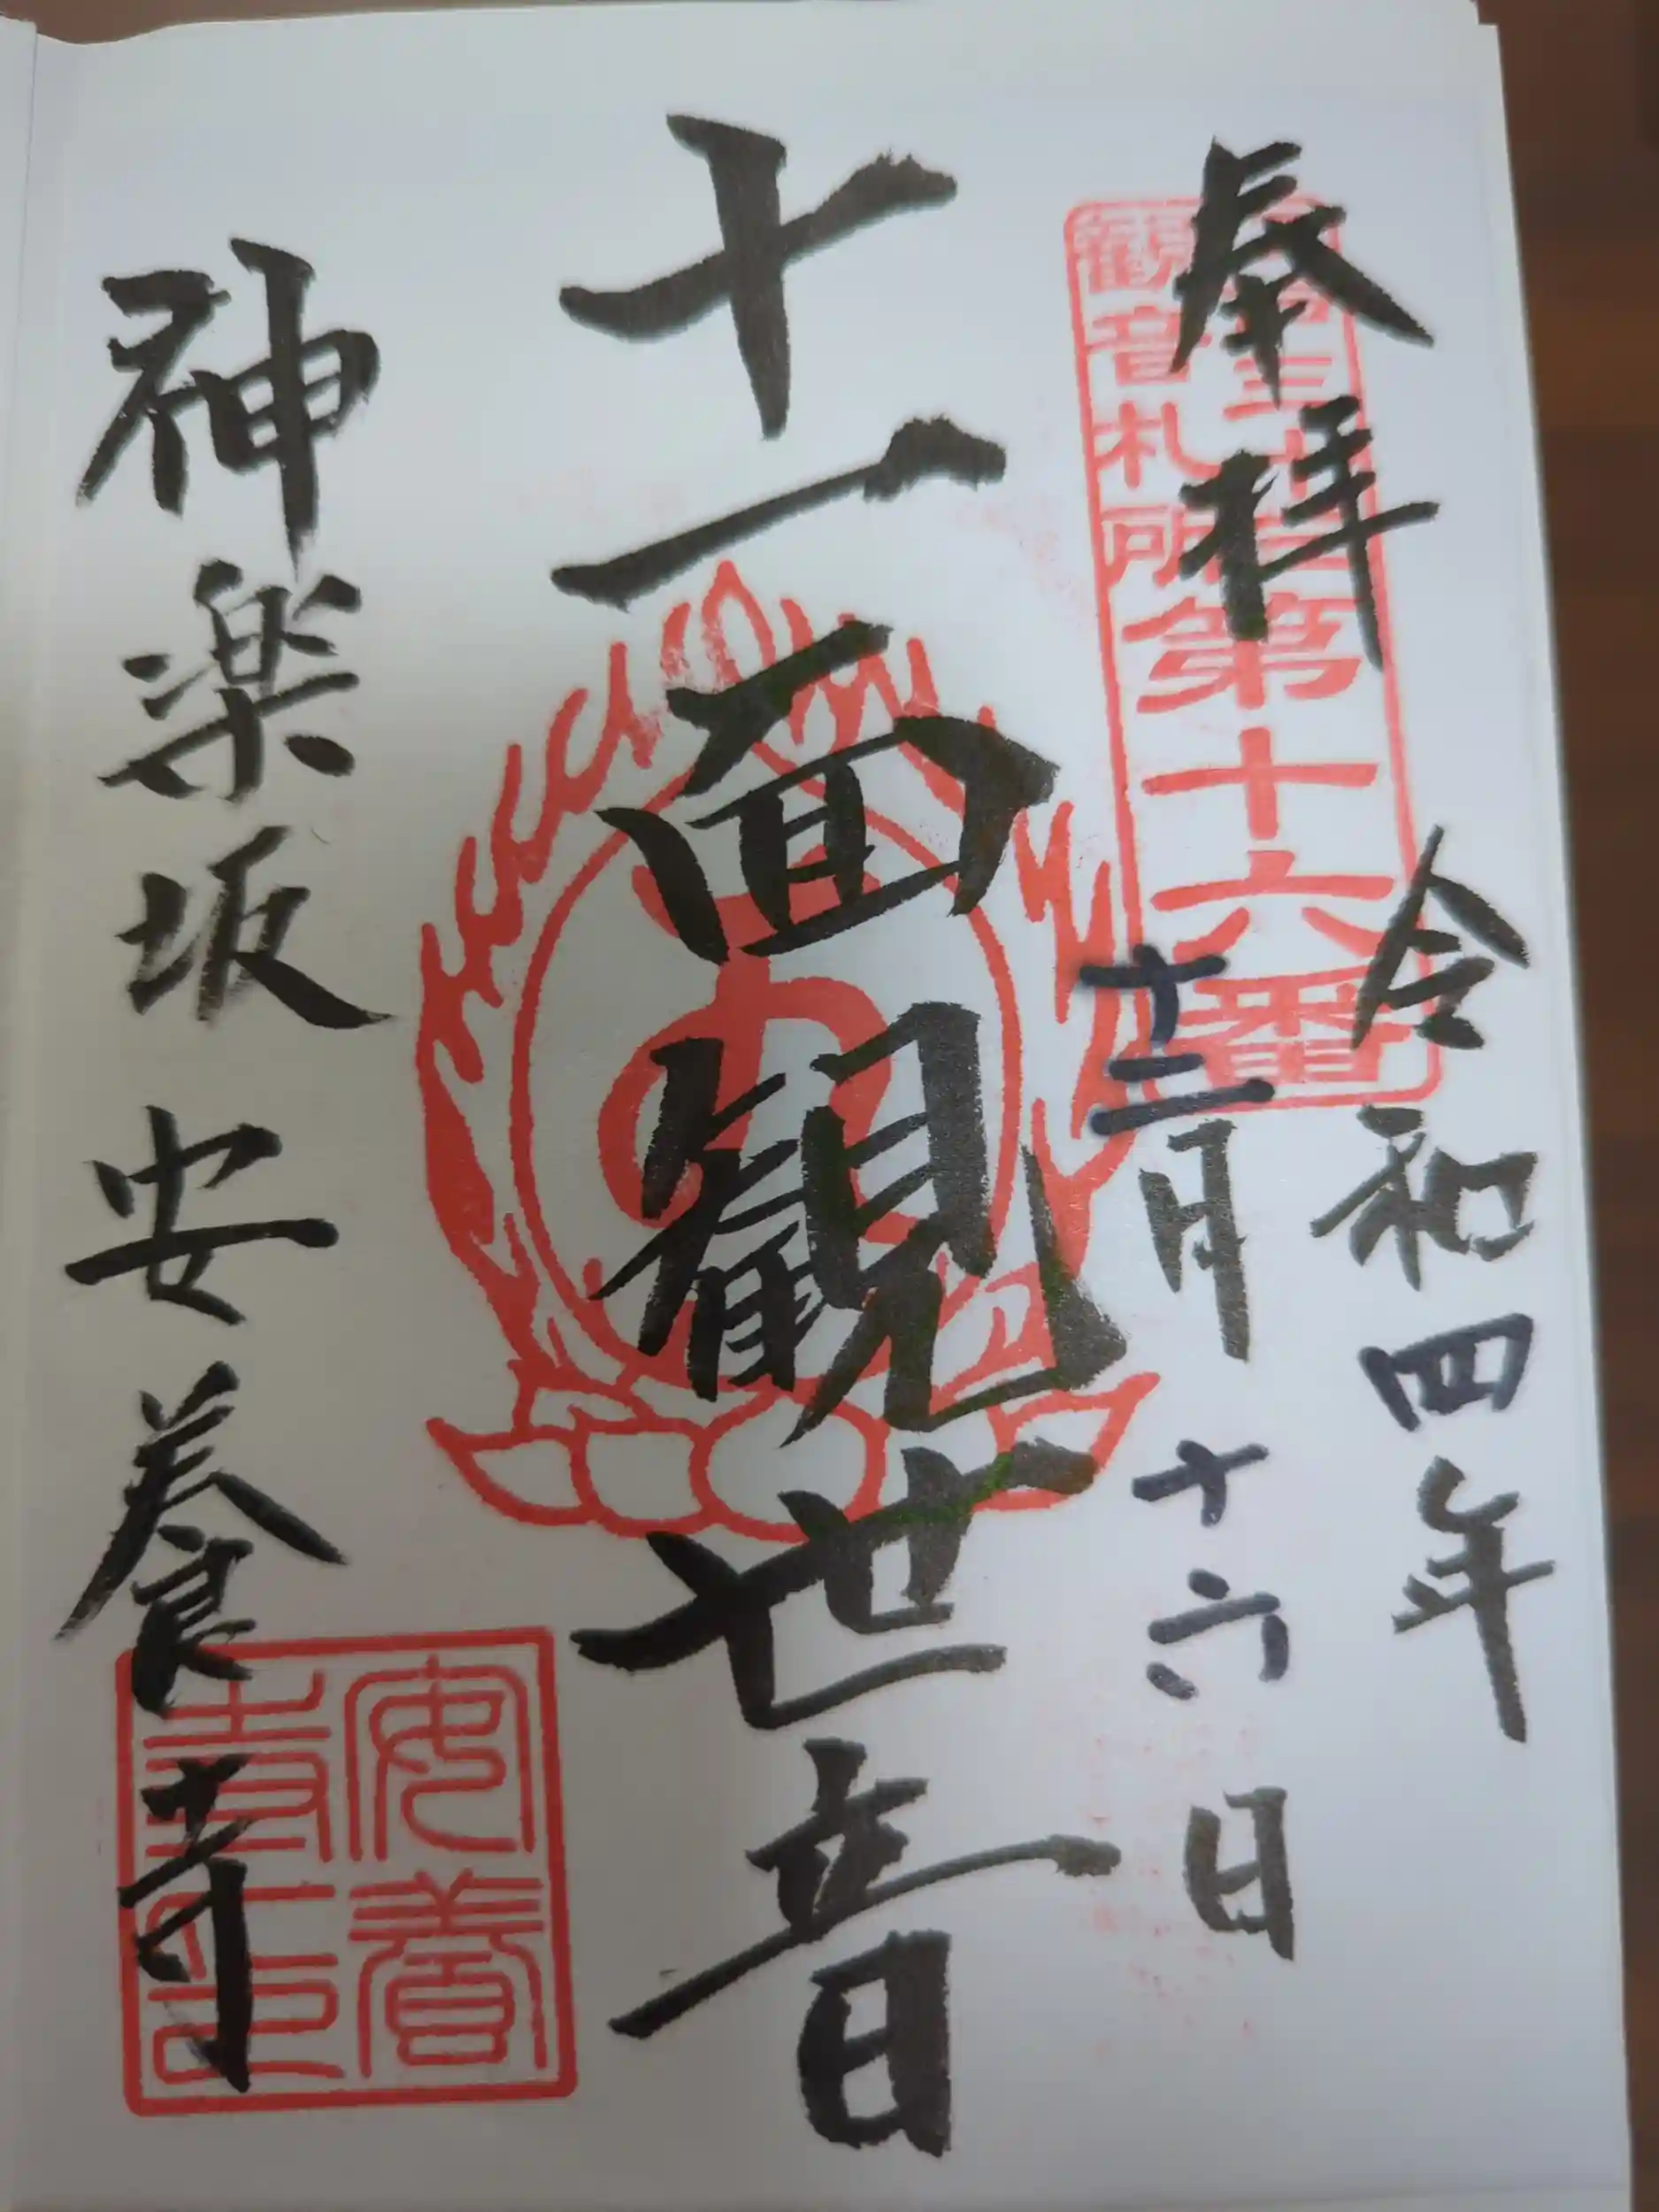 奉拝
令和四年
十二月十六日
第十六番
観音札所
十一面観世音
神楽坂安養寺
安養
寺印